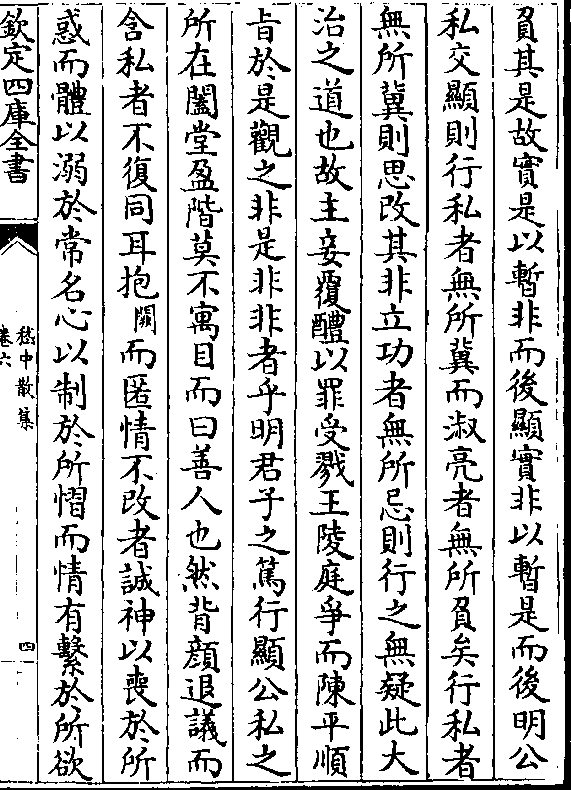 負其是故實是以暫非而後顯實非以暫是而後明公
私交顯則行私者無所冀而淑亮者無所負矣行私者
無所冀則思改其非立功者無所忌則行之無疑此大
治之道也故主妾覆醴以罪受戮王陵庭爭而陳平順
旨於是觀之非是非非者乎明君子之篤行顯公私之
所在闔堂盈階莫不寓目而曰善人也然背顔退議而
含私者不復同耳抱闕而匿情不改者誠神以喪於所
惑而體以溺於常名心以制於所慴而情有繫於所欲
欽定四庫全書
嵇中散集
卷六
四